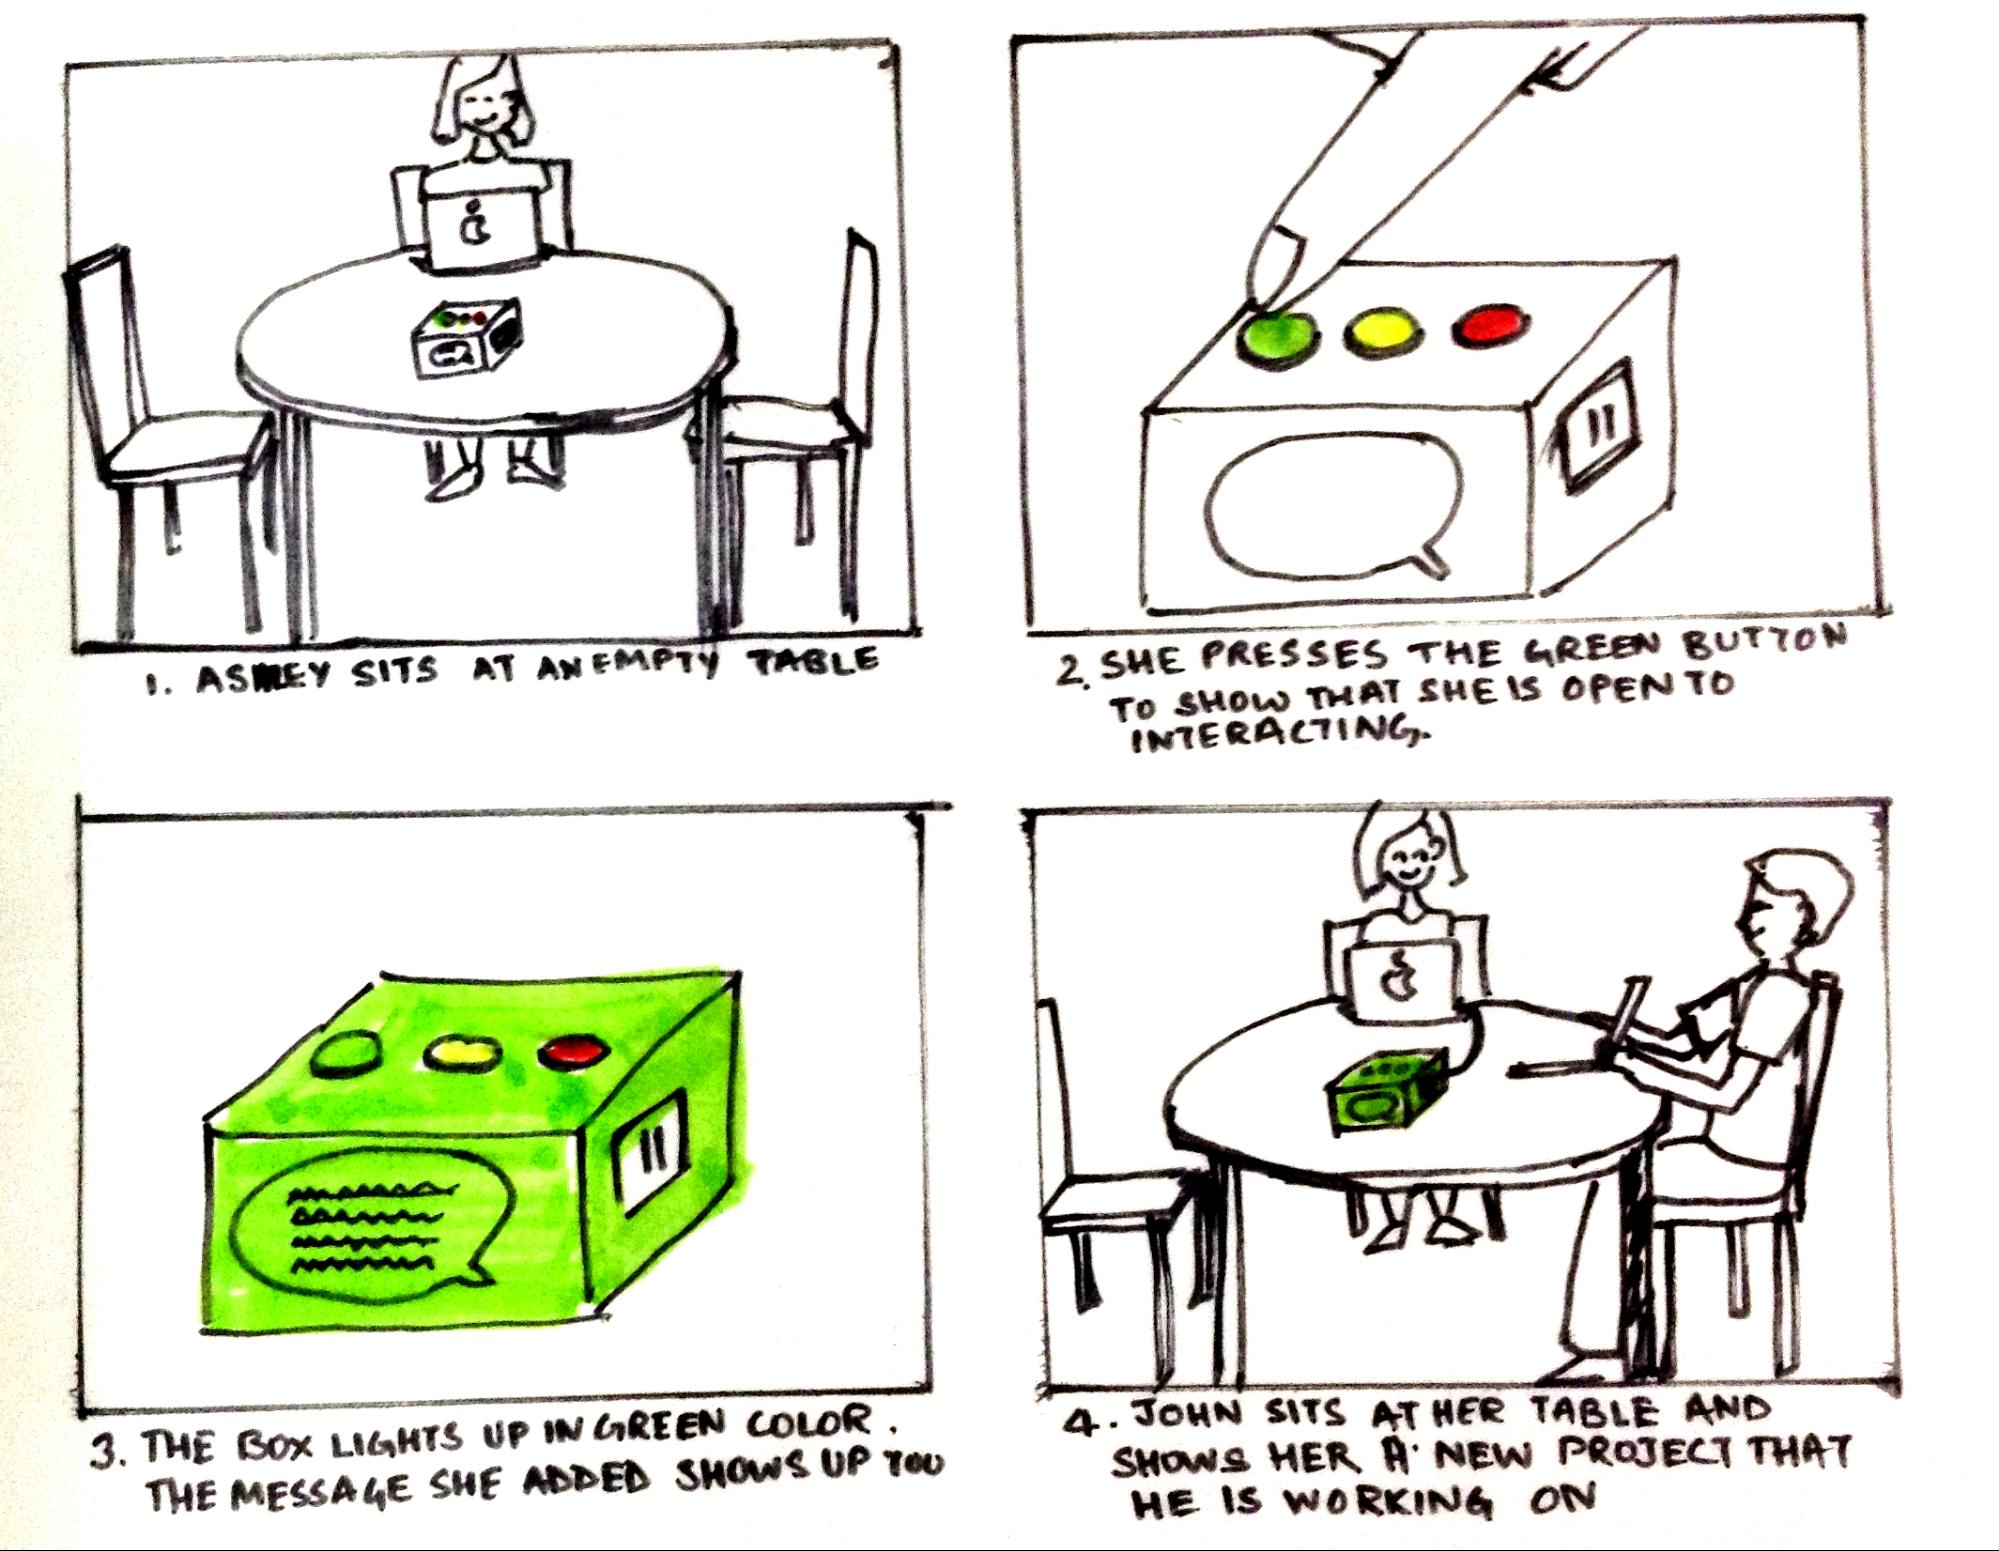 1. ASHLEY SITS AT AN EMPTY TABLE
2. SHE PRESSES THE GREEN BUTTON
TO SHOW THAT SHE IS OPEN TO
INTERACTING.
3. THE BOX LIGHTS UP IN GREEN COLOR.
THE MESSAGE SHE ADDED SHOWS UP TOO
4. JOHN SITS AT HER TABLE AND
SHOWS HER A NEW PROJECT THAT
HE IS WORKING ON